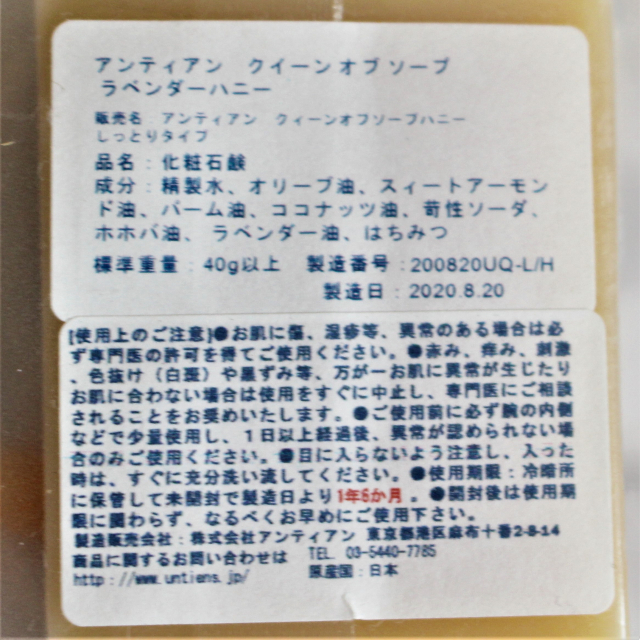 アンティアン　クイーンオブソープ
ラベンダーハニー
販売名：アンティアン　クィーンオブソープハニー
しっとりタイプ
品名：化粧石鹸
成分：精製水、オリーブ油、スィートアーモン
ド油、パーム油、ココナッツ油、苛性ソーダ、
ホホバ油、ラベンダー油、はちみつ
標準重量：40g以上　製造番号：200820UQ-L/H
製造日：2020.8.20
[使用上のご注意]●お肌に傷、湿疹等、異常のある場合は必
ず専門医の許可を得てご使用ください。●赤み、痒み、刺激
、色抜け（白斑）や黒ずみ等、万が一お肌に異常が生じたり
お肌に合わない場合は使用をすぐに中止し、専門医にご相談
されることをお奨めいたします。●ご使用前に必ず腕の内側
などで少量使用し、１日以上経過後、異常が認められない場
合のみご使用ください。●目に入らないよう注意し、入った
時は、すぐに充分洗い流してください。●使用期限：冷暗所
に保管して未開封で製造日より1年6か月。●開封後は使用期
限に関わらず、なるべくお早めにご使用下さい。
製造販売会社：株式会社アンティアン 東京都港区麻布十番2-8-14
商品に関するお問い合わせは　TEL. 03-5440-7785
http://www.untiens.jp/　原産国：日本